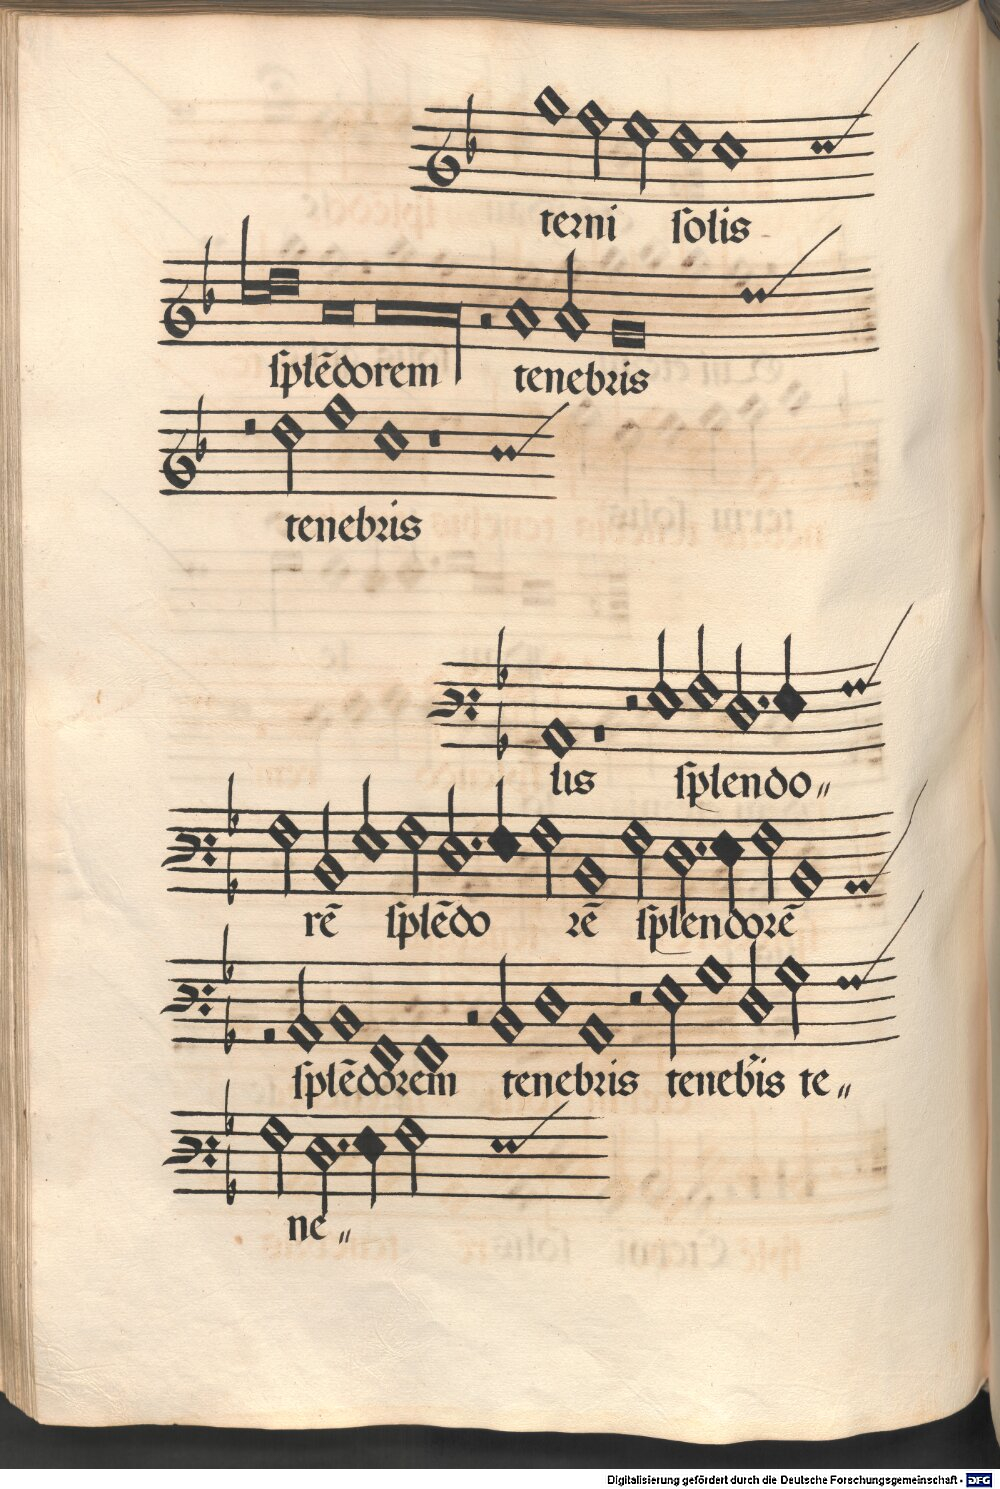 terni ſolis
ſplēdorem tenebꝛis
tenebꝛis
lis ſplendo〃
rē ſplēdo rē ſplendoꝛē
ſplēdoꝛem tenebꝛis teneb᷑is te〃
ne〃
Digitalisierung gefördert durch die Deutsche Forschungsgemeinschaft - DFG